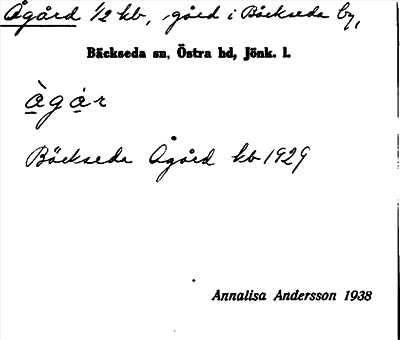 Ågård 1/2 kb, gård i Bäckseda by,
Bäckseda sn, Östra hd, Jönk. l.
àgár
Bäckseda Ågård kb 1929
Annalisa Andersson 1938